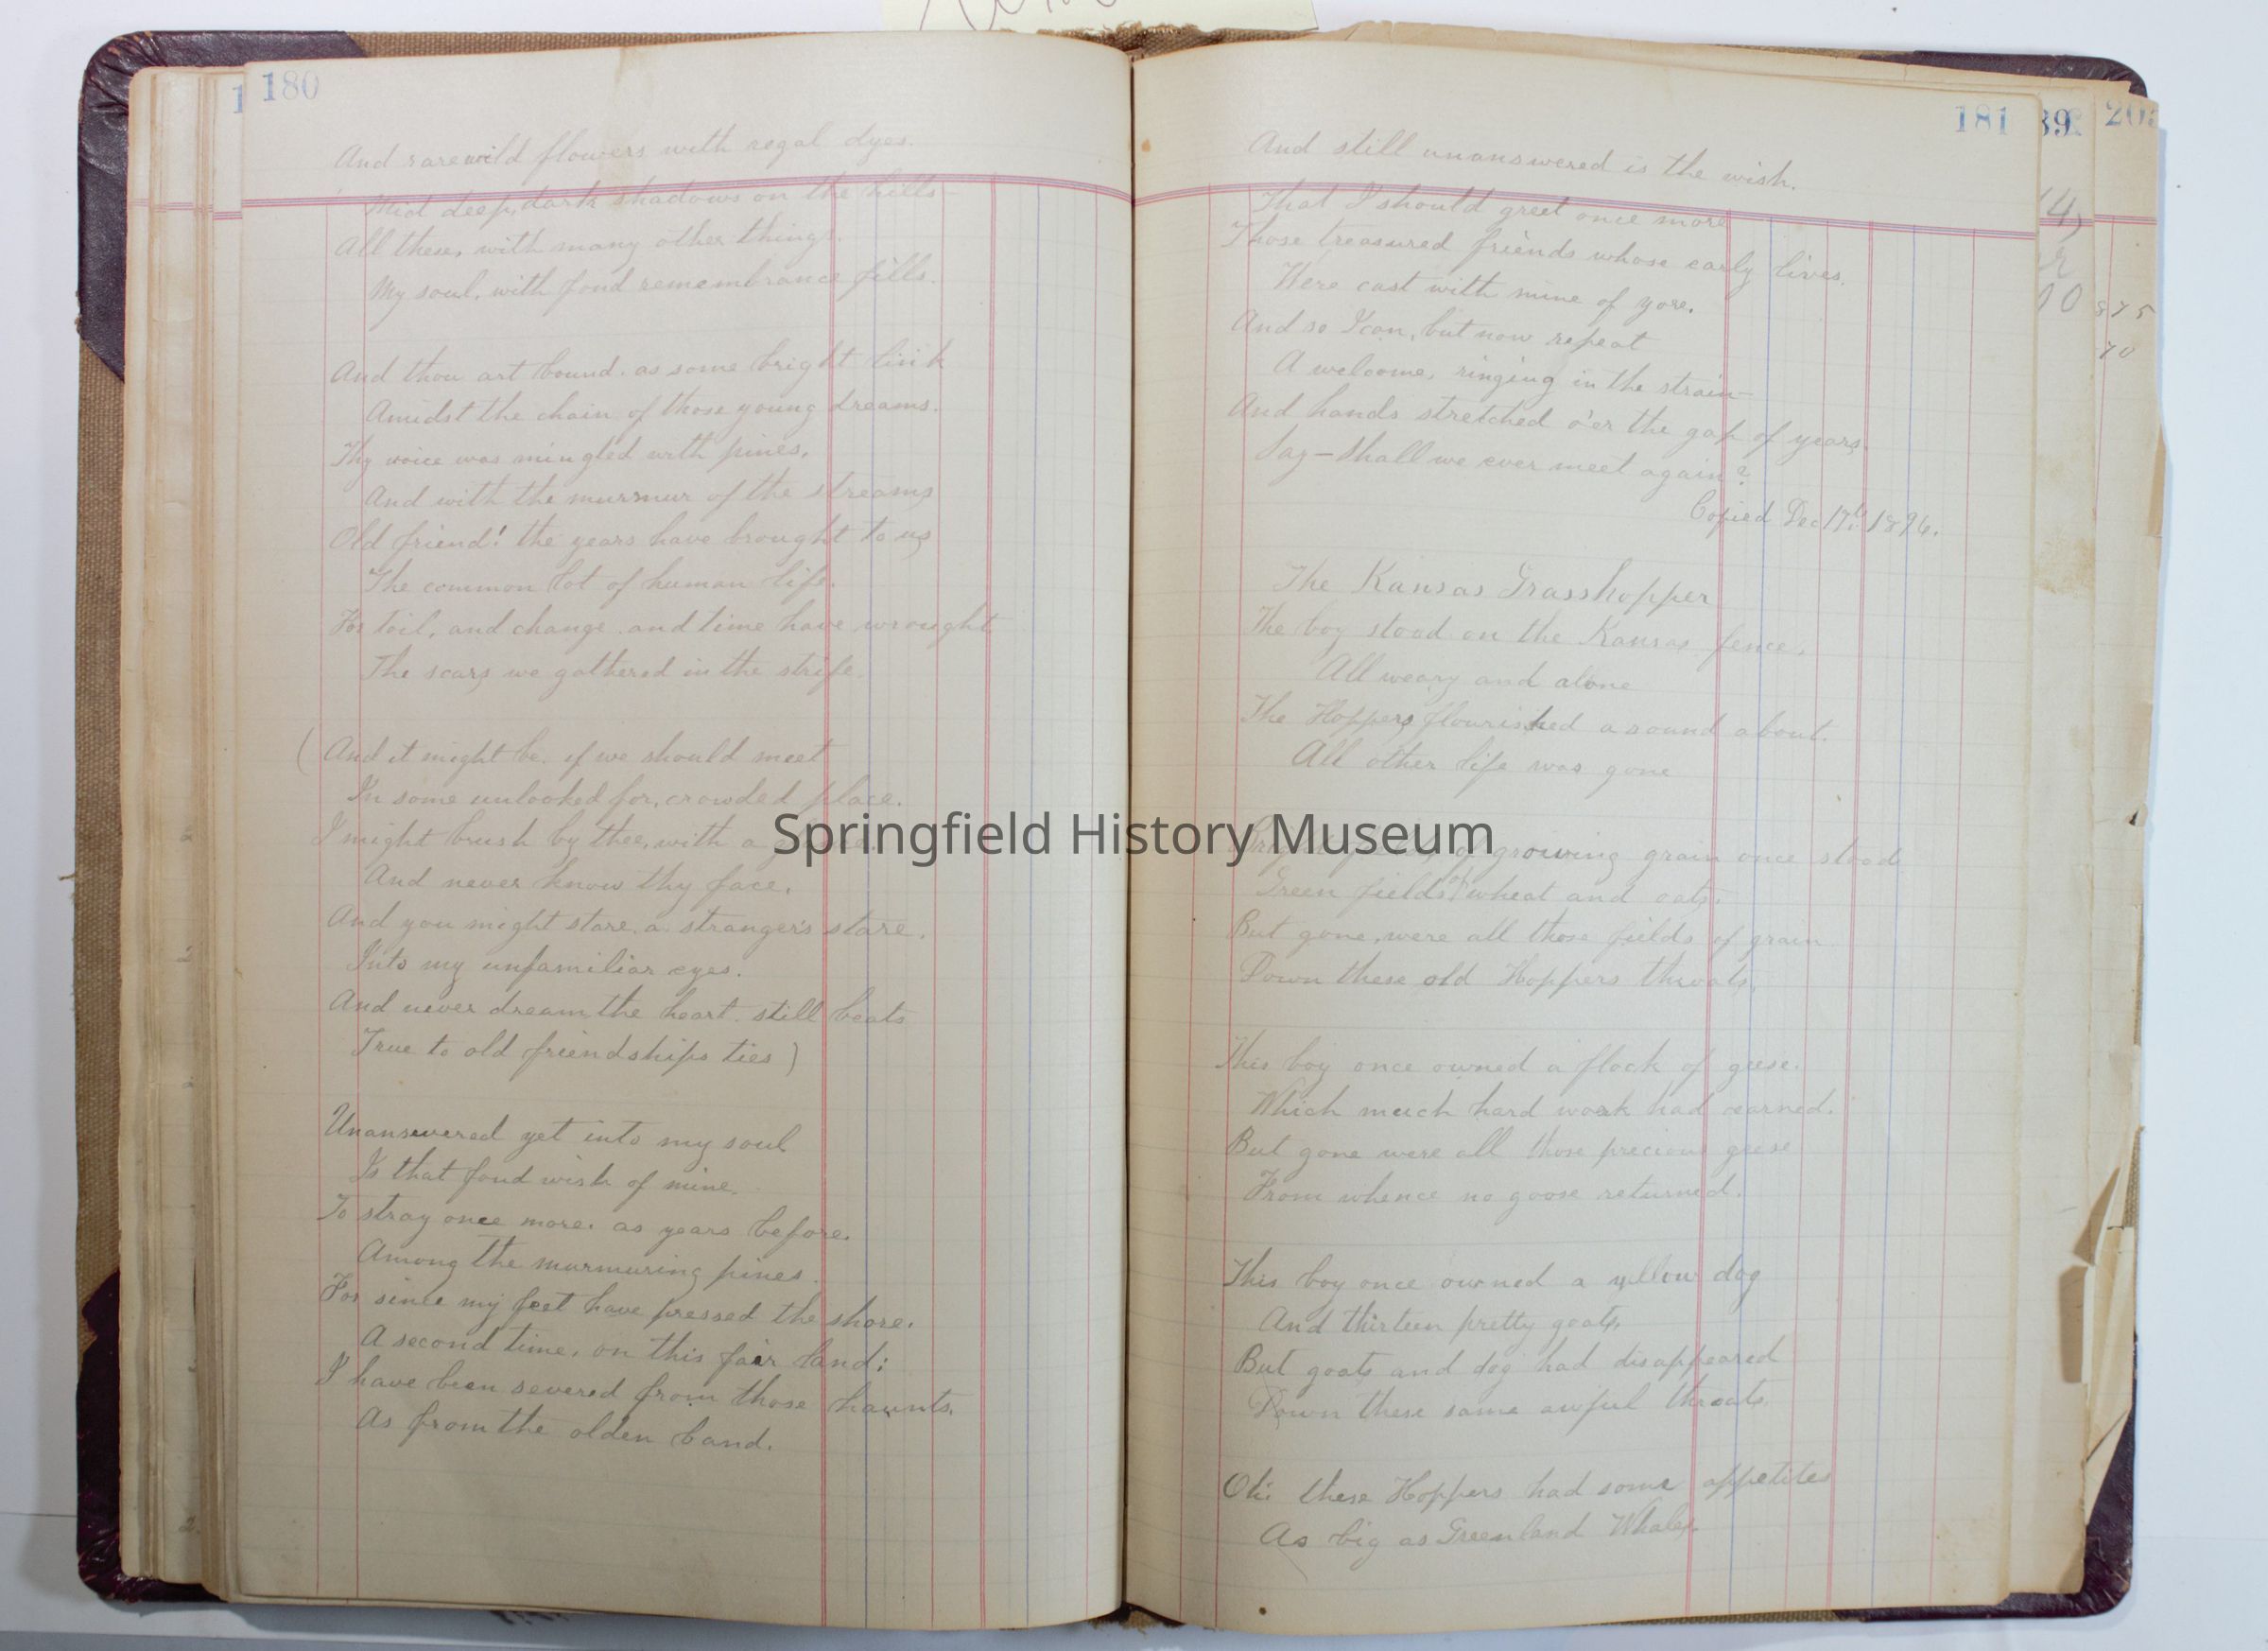 180
And rare wild flowers with regal dyes.
Mid deep, dark shadows on the hills-
All these, with many other things.
My soul, with fond remembrance fills.
And thou art bound. as some bright link
Amidst the chain of those young dreams.
Thy voice was mingled with pines,
And with the murmur of the streams
Old friend! the years have brought to us
The common lot of human life.
For toil, and change. and time have wrought
The scars we gathered in the strife.
(And it might be. if we should meet
In some unlooked for, crowded place.
I might brush by thee, with a
And never know thy face.
And you might stare. a. stranger's stare.
Into my unfamiliar eyes.
And never dream the heart. still beats
True to old friendships ties)
Unanswered yet into my soul
Is that fond wish of mine.
To stray once more. as years before.
Among the murmuring pines.
For since my feet have pressed the shore.
A second time. on this fair land;
I have been severed from those haunts.
As from the olden band.
181
And still unanswered is the wish.
That I should greet once more
Those treasured friends whose early lives.
Were cast with mine of yore.
And so I can, but now repeat
A welcome, ringing in the strain-
And hands stretched o'er the gap of years.
Say-Shall we ever meet again?
Copied Dec 17th 1896.
The Kansas Grasshopper
The boy stood on the Kansas fence,
All weary and alone
The Hoppers flourished around about.
All other life was gone
of growing grain once stood
Green fields of wheat and oats.
But gone, were all those fields of grain
Down these old Hoppers throats.
This boy once owned a flock of geese.
Which much hard work had earned.
But gone were all those precious geese
From whence no goose returned.
This boy once owned a yellow dog
And thirteen pretty goats.
But goats and dog had disappeared
Down these same awful throats.
Oh! these Hoppers had some appetites
As big as Greenland Whales.
39
203
14)
10
875
70
Springfield History Museum